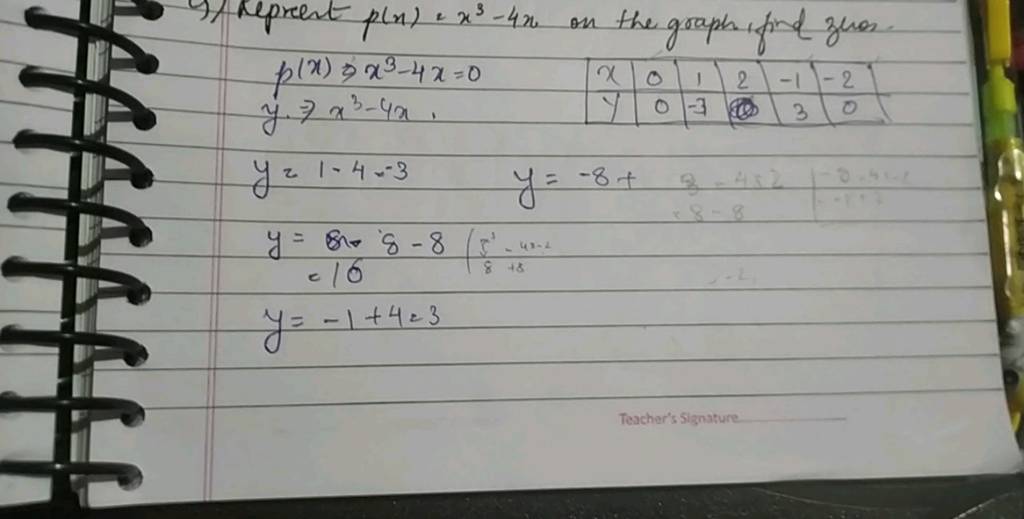 9) Represent p(x) = x³ - 4x on the graph, find zeros.
p(x) ⇒ x³ - 4x = 0
y ⇒ x³ - 4x.
x 0 1 2 -1 -2
y 0 -3 3 0
y = 1 - 4 = -3
y = -8 +
8 - 4×2
= 8 - 8
y = 8 - 8
= 16
8 +8
y = -1 + 4 = 3
Teacher's Signature